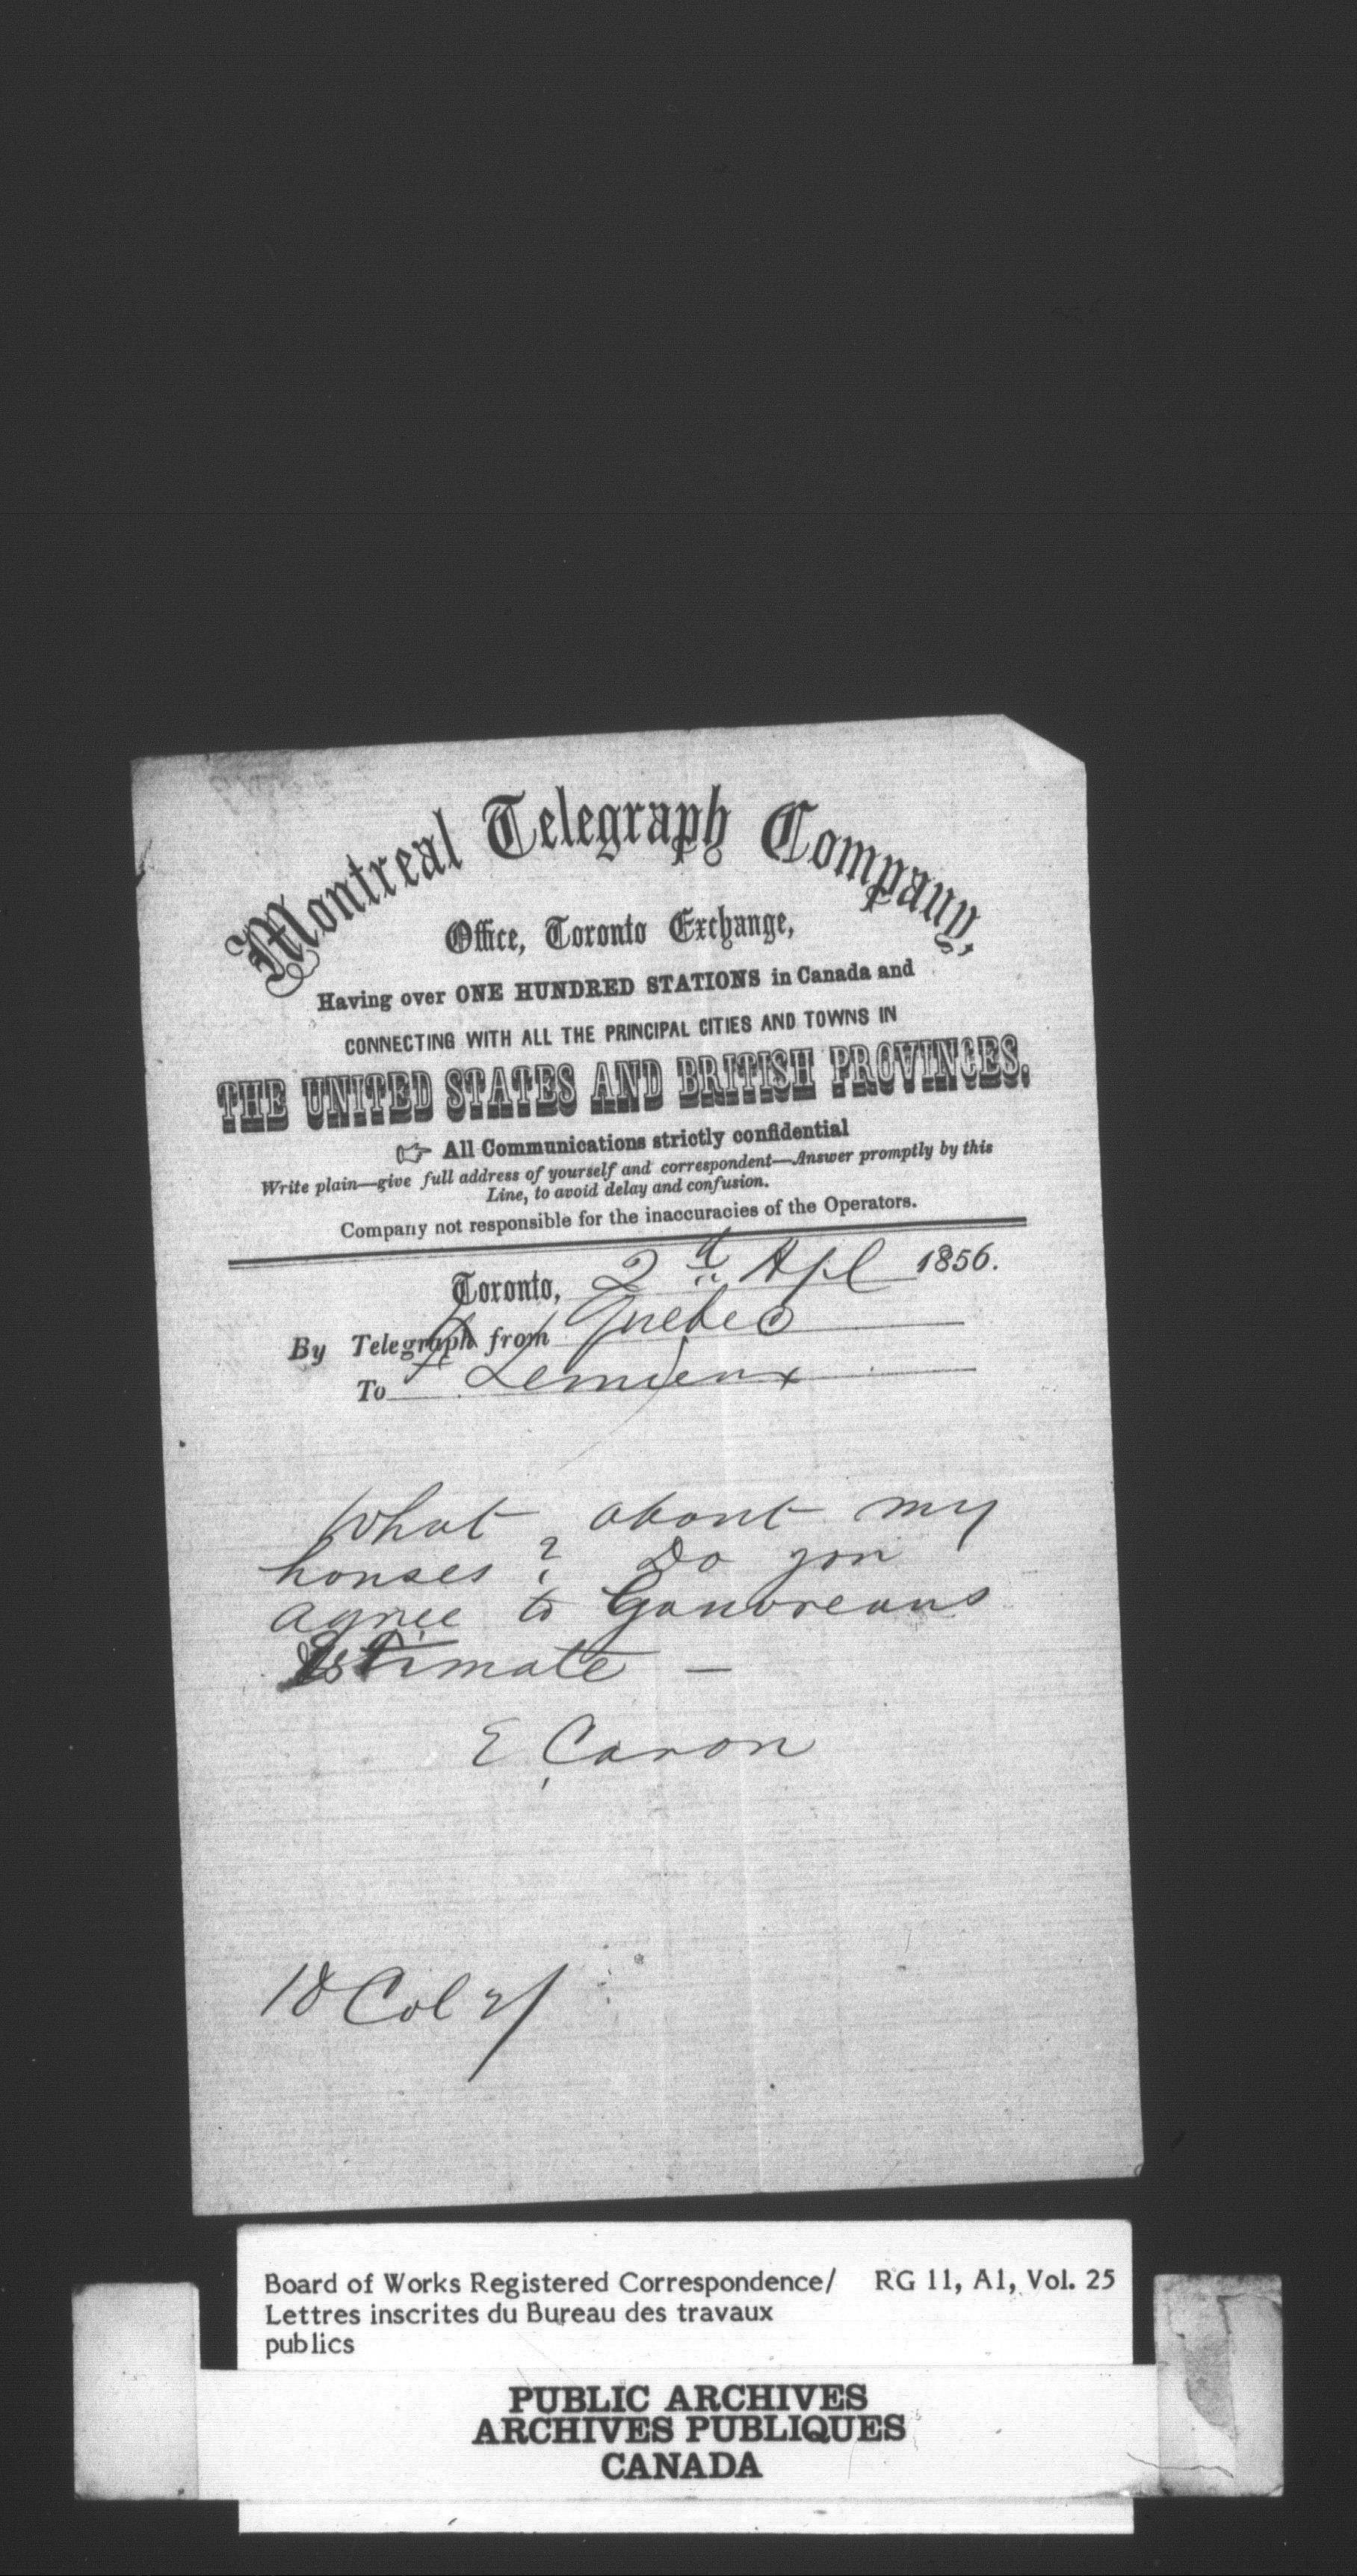 Montreal Telegraph Company,
Office, Toronto Exchange,
Having over ONE HUNDRED STATIONS in Canada and
CONNECTING WITH ALL THE PRINCIPAL CITIES AND TOWNS IN
THE UNITED STATES AND BRITISH PROVINCES.
All Communications strictly confidential
Write plain—give full address of yourself and correspondent—Answer promptly by this
Line, to avoid delay and confusion.
Company not responsible for the inaccuracies of the Operators.
Toronto, 2d Apl 1856.
By Telegraph from Quebec
To F Lemieux
What about my
houses? Do you
agree to Gauvreaus
Estimate —
E Caron
18 Col
Board of Works Registered Correspondence/ RG 11, A1, Vol. 25
Lettres inscrites du Bureau des travaux
publics
PUBLIC ARCHIVES
ARCHIVES PUBLIQUES
CANADA